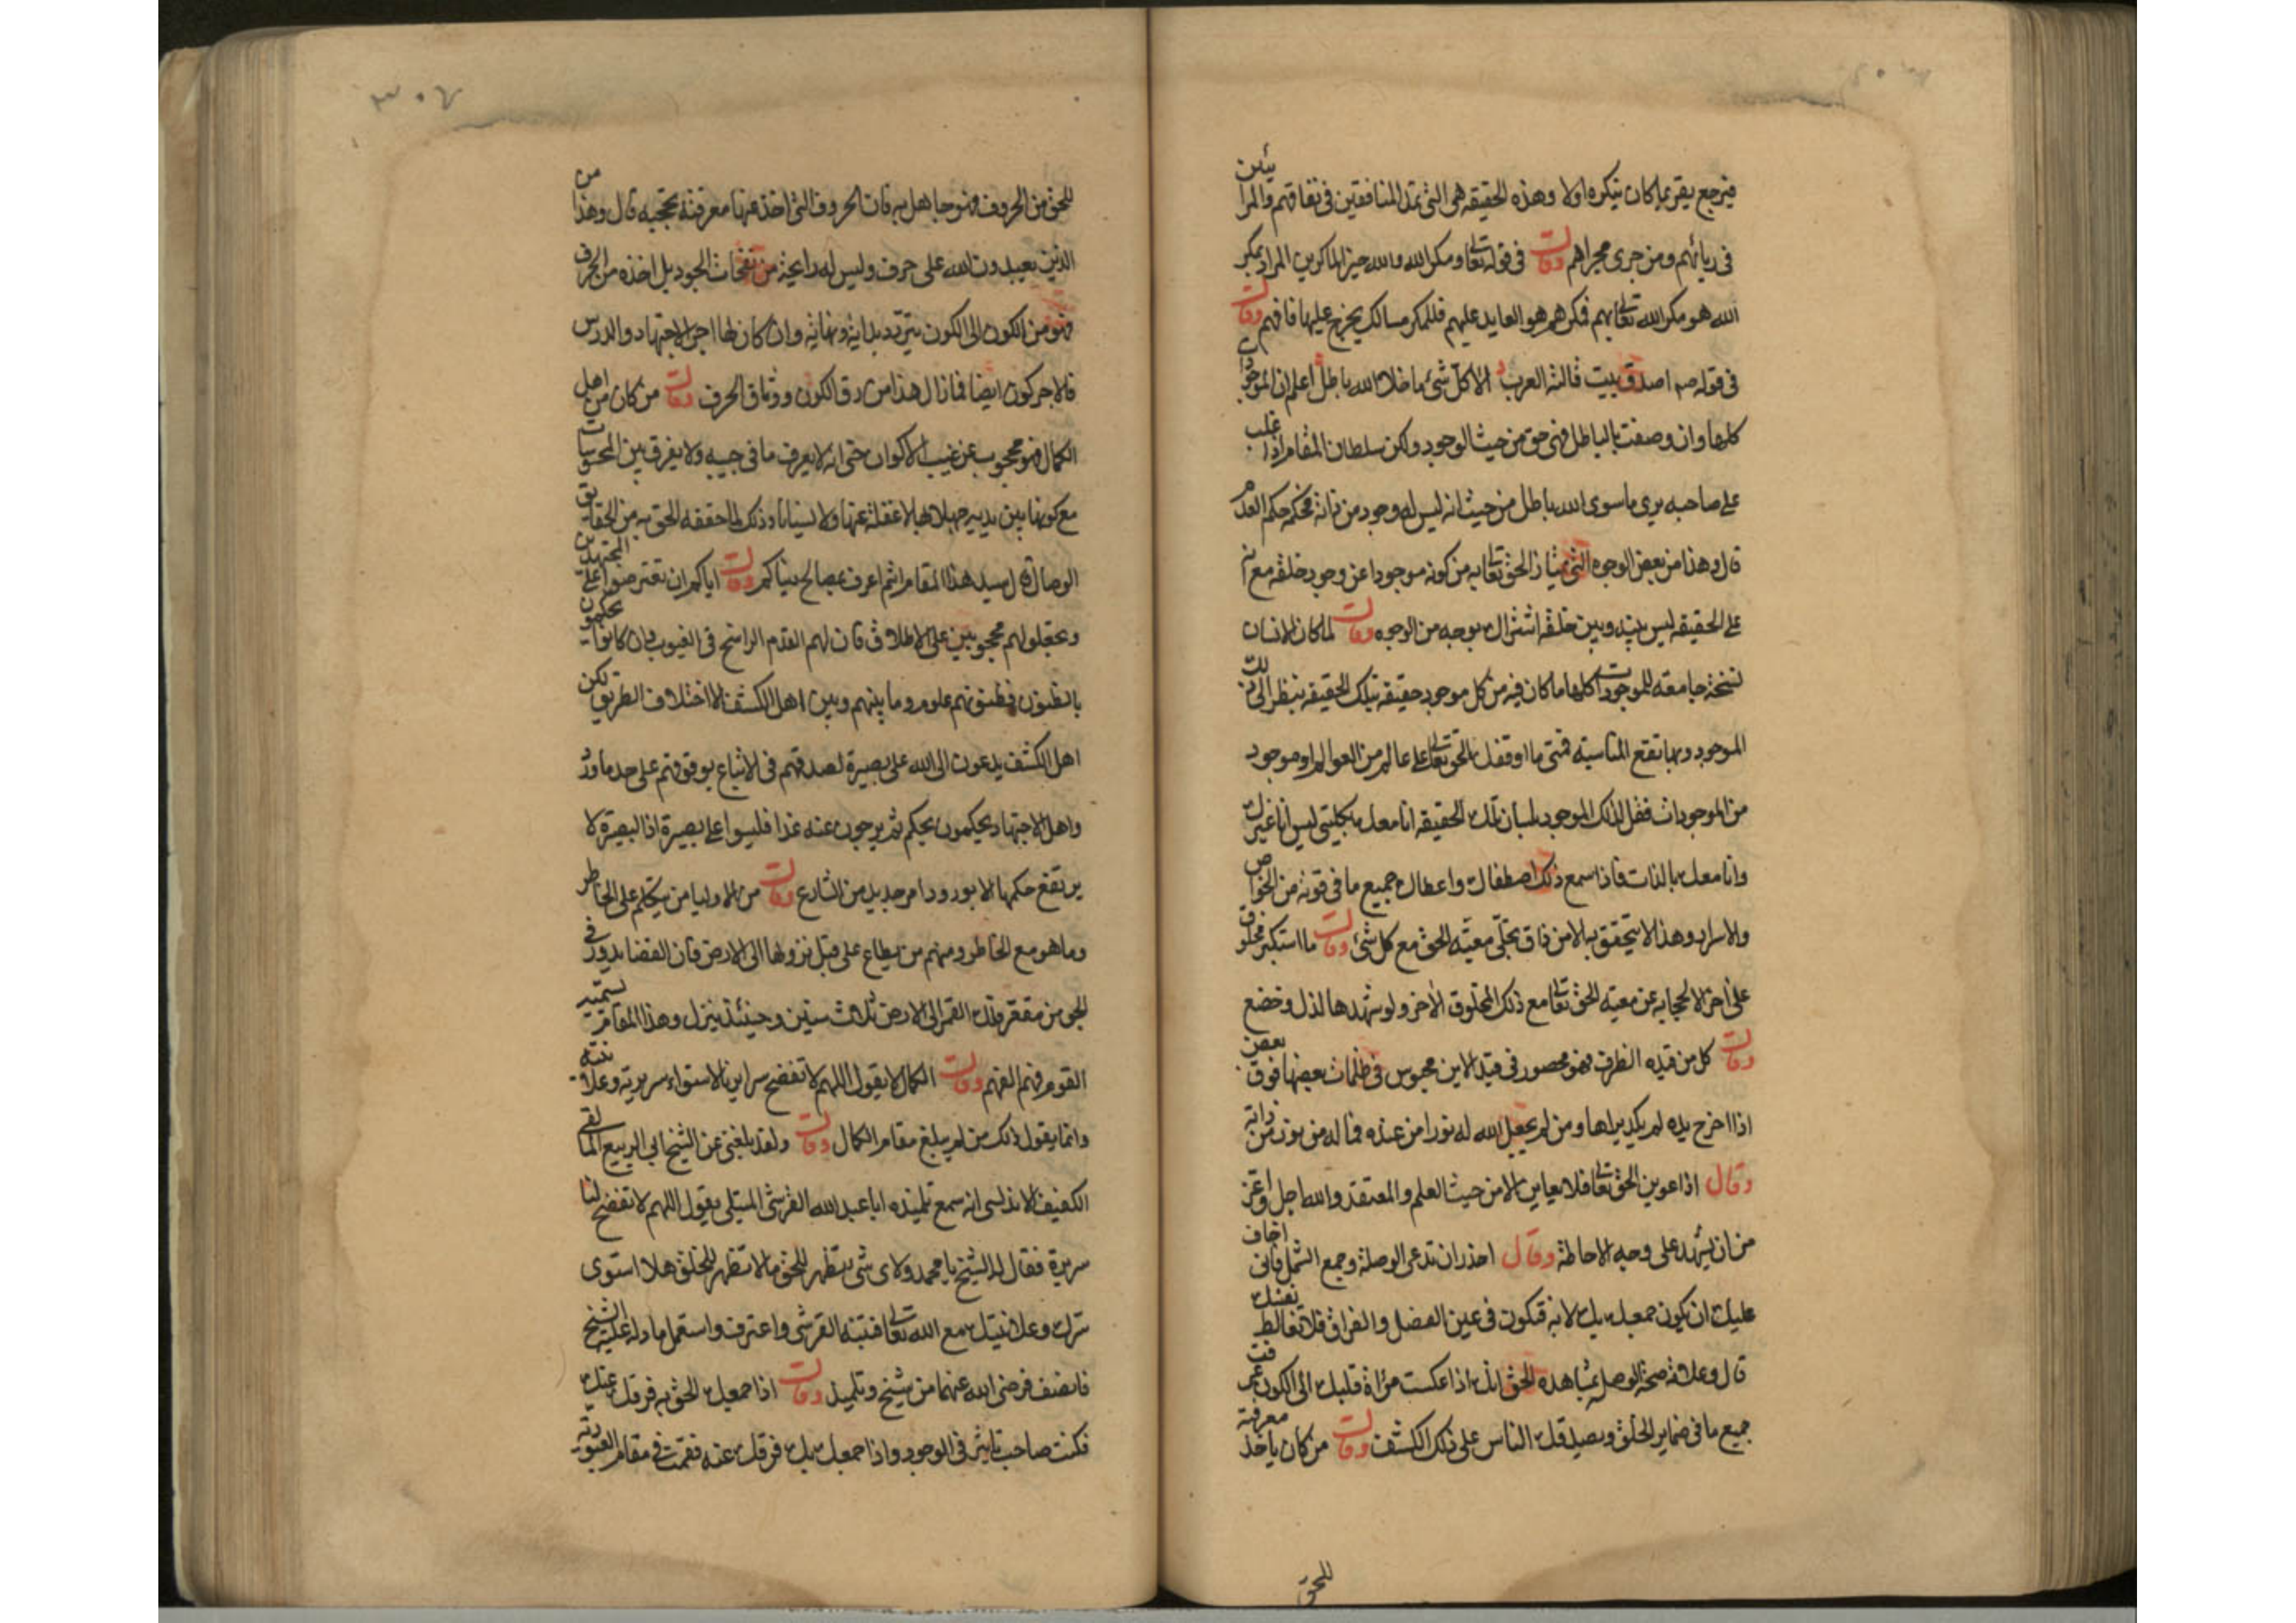 فيرجع يقر بما كان ينكره اولا وهذه الحقيقه هى التى تمد المنافقين فى نفاقهم والمرائين
فى ريائهم ومن جرى مجراهم وقال فى قوله تعالى ومكر الله والله خير الماكرين المراد بمكر
الله هو مكر الله تعالى بهم فمكرهم هو العايد عليهم فللمكر مسالك يخرج عليها فافهم وقال
فى قوله صم اصدق بيت قالته العرب الا كل شئ ما خلا الله باطل اعلم ان الموجودات
كلها وان وصفت بالباطل فهى حق من حيث الوجود ولكن سلطان المقام اذا غلب
على صاحبه يرى ما سوى الله باطل من حيث انه ليس له وجود من ذاته فحكمه حكم العدم
قال وهذا من بعض الوجوه التى يمتاز الحق تعالى به من كونه موجودا عن وجود خلقه مع انه
على الحقيقه ليس بينه وبين خلقه اشتراك بوجه من الوجوه وقال لما كان الانسان
نسخة جامعة للموجودات كلها ما كان فيه من كل موجود حقيقه بتلك الحقيقه ينظر الى ذلك
الموجود وبها تقع المناسبه فمتى ما اوقفك الحق تعالى على عالم من العوالم او موجود
من الموجودات فقل لذلك الموجود بلسان تلك الحقيقه انا معك بكليتى ليس انا غيرك
وانا معك بالذات فاذا سمع ذلك اصطفاك واعطاك جميع ما فى قوته من الخواص
والاسرار وهذا لا يتحقق به الا من ذاق تجلى معيته الحق مع كل شئ وقال ما استكبر مخلوق
على اخر الا لحجابه عن معية الحق تعالى مع ذلك المخلوق الاخر ولو شهدها لذل وخضع
وقال كل من قيده الظرف فهو محصور فى قيد الاين محبوس فى ظلمات بعضها فوق بعض
اذا اخرج يده لم يكد يراها ومن لم يجعل الله له نورا من عنده فما له من نور من ذاته
وقال اذا عوين الحق تعالى فلا يعاين الا من حيث العلم والمعتقد والله اجل واعز
من ان يشهد على وجه الاحاطة وقال احذر ان تدعى الوصلة وجمع الشمل فانى اخاف
عليك ان يكون جمعك بك لا به فتكون فى عين الفصل والفراق فلا تغالط نفسك
قال وعلامة صحة الوصل بمشاهده الحق انك اذا عكست مرآة قلبك الى الكون عرفت
جميع ما فى ضماير الخلق ويصدقك الناس على ذلك الكشف وقال من كان ياخذ معرفة
للحق
٣٠٧
للحق من الحروف فهو جاهل به فان الحروف التى اخذ عنها معرفته تحجبه قال وهذا من
الذين يعبدون الله على حرف وليس له رايحة من نفحات الجود بل اخذه من الحرف
فهو من الكون الى الكون يتردد بداية ونهاية وان كان لها اجر الاجتهاد والدرس
فالاجر كون ايضا فما زال هذا من رق الكون ووثاق الحرف وقال من كان من اهل
الكمال فهو محجوب عن غيب الاكوان حتى انه لا يعرف ما فى جيبه ولا يفرق بين المحسوسات
مع كونها بين يديه جهلا بها لا غفلة عنها ولا نسيانا وذلك لما حققه الحق به من الحقايق
الوصال قال لسيد هذا المقام انتم اعرف بمصالح دنياكم وقال اياكم ان تعترضوا على المجتهدين
وتجعلوهم محجوبين على الاطلاق فان لهم القدم الراسخ فى الغيوب فان كانوا يحكمون
بالظنون فظنونهم علوم وما بينهم وبين اهل الكشف الا اختلاف الطريق لكن
اهل الكشف يدعون الى الله على بصيرة لصدقهم فى الاتباع بوقوفهم على حد ما ورد
واهل الاجتهاد يحكمون بحكم ثم يرجعون عنه غدا فليسوا على بصيرة اذ البصيرة لا
يرتفع حكمها الا بورود امر جديد من الشارع وقال من الاوليا من يتكلم على الخاطر
وما هو مع الخاطر ومنهم من يطلع على قبل نزولها الى الارض فان القضا يدور فى
الجو من مقعر فلك القمر الى الارض ثلاث سنين وحينئذ ينزل وهذا المقام يسميه
القوم فهم الفهم وقال الكمال لا يقول اللهم لا تفضح سرايرنا لاستواء سريرته وعلانيته
وانما يقول ذلك من لم يبلغ مقام الكمال وقال ولقد بلغنى عن الشيخ ابى الربيع المالقى
الكفيف الاندلسى انه سمع تلميذه ابا عبد الله القرشى المبتلى يقول اللهم لا تفضح لنا
سريرة فقال له الشيخ يا محمد ولاى شئ تظهر للحق ما لا تظهر للخلق هلا استوى
سرك وعلانيتك مع الله تعالى فتنبه القرشى واعترف واستعمل ما دله عليه الشيخ
فانصف فرضى الله عنهما من شيخ وتلميذ وقال اذا جمعك الحق به فرقك عنك
فكنت صاحب تاثير فى الوجود واذا جمعك بك فرقك عنه فقمت فى مقام العبودية